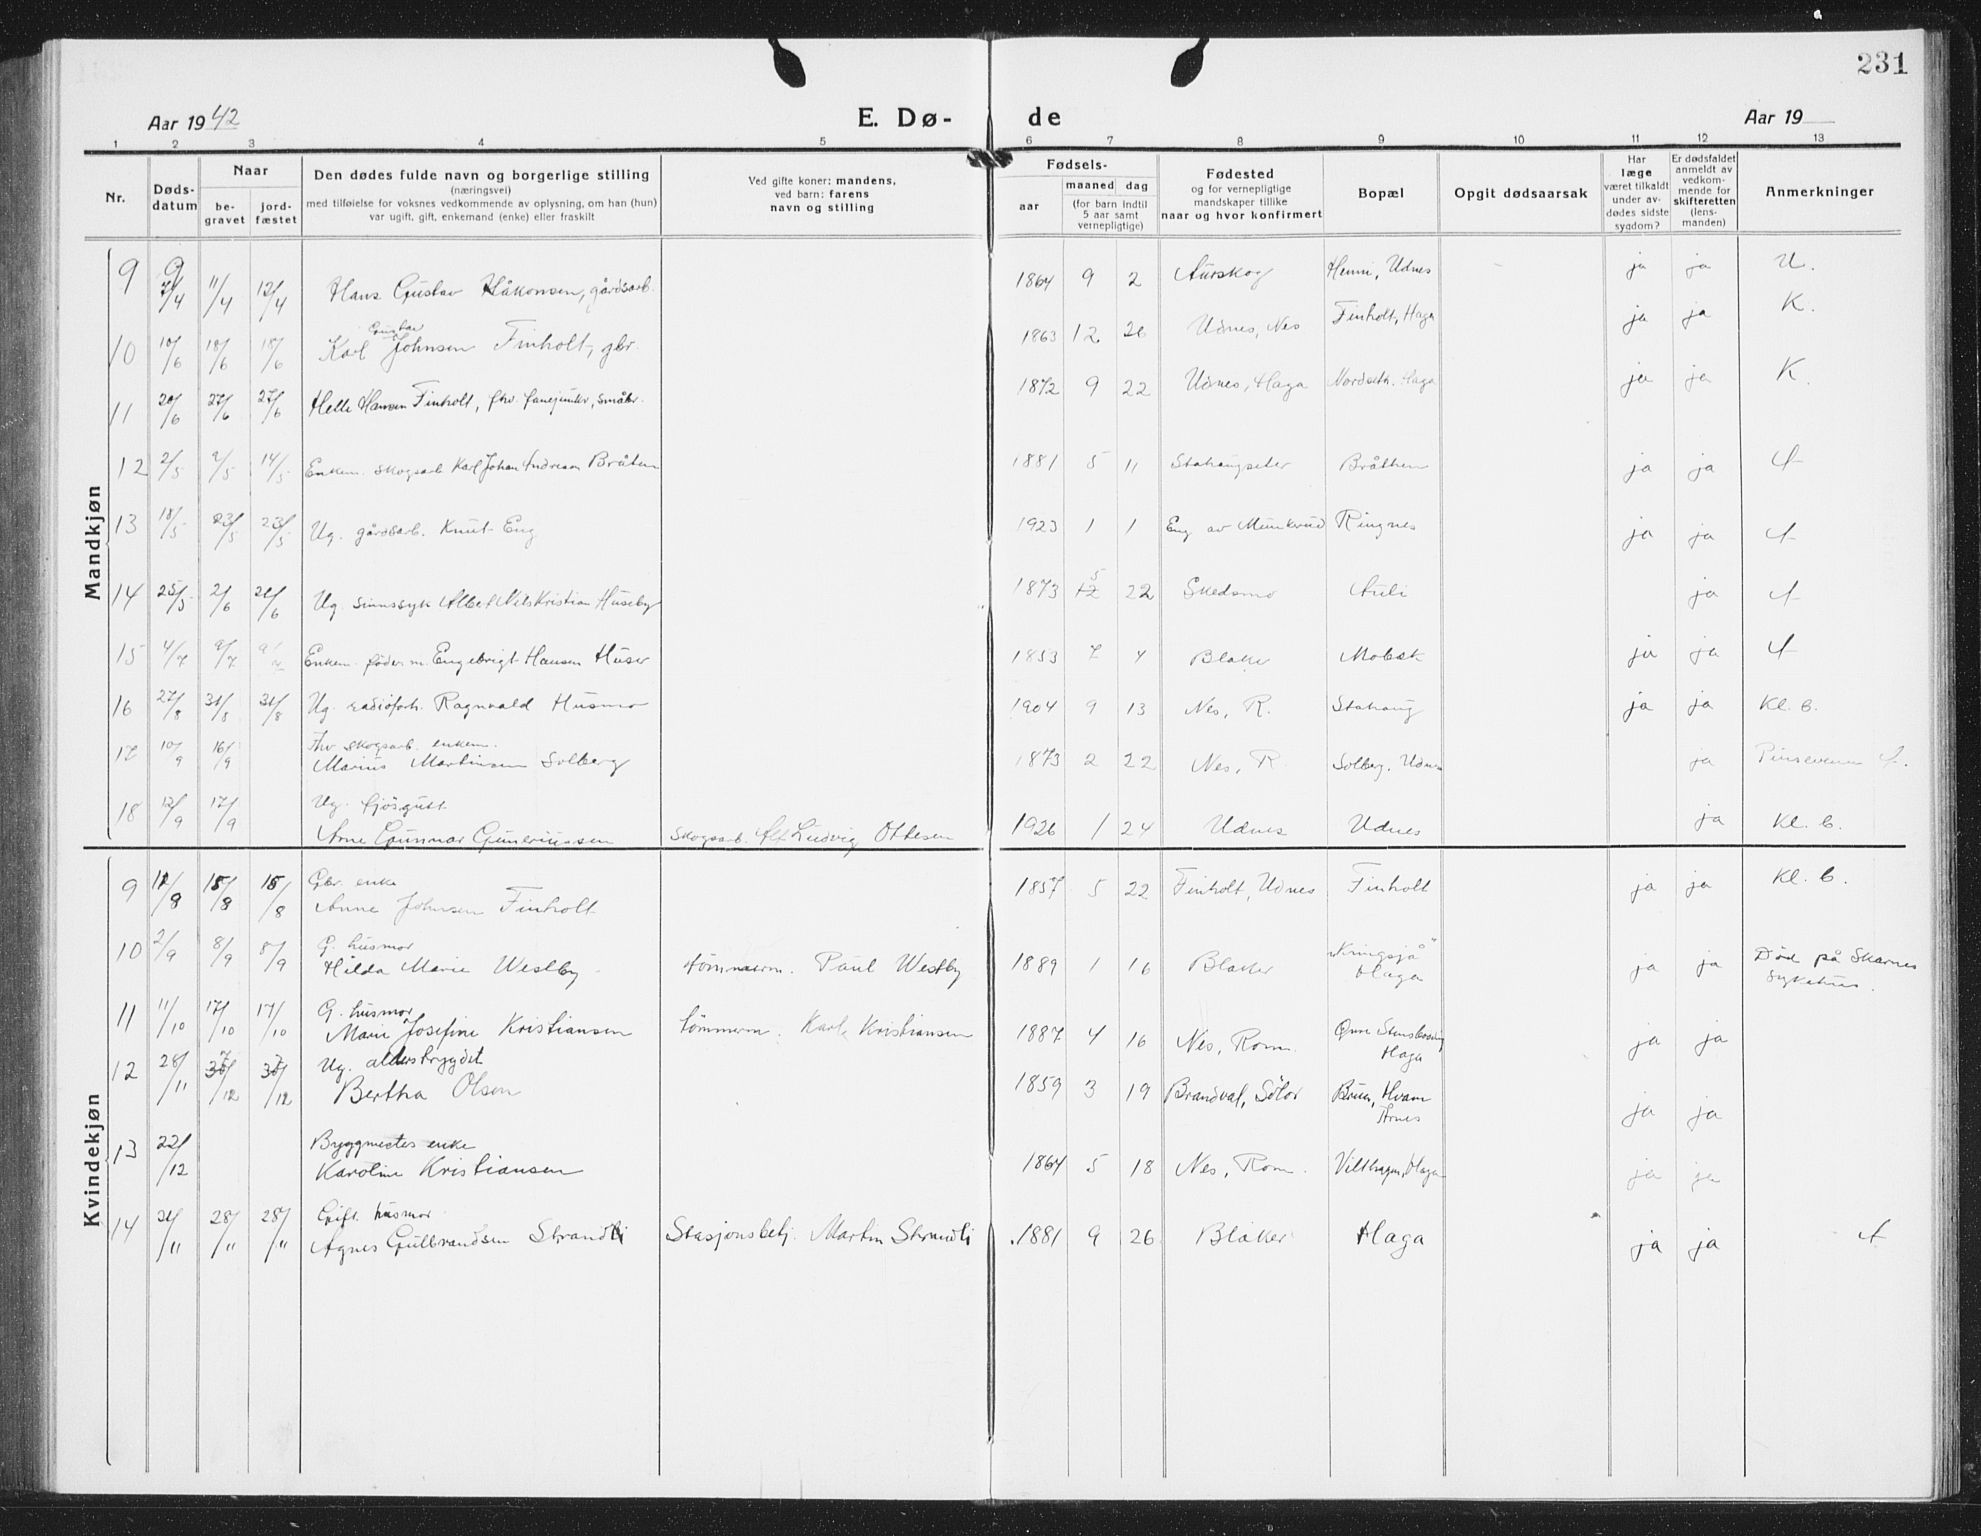 231
Aar 1942
E. Dø-
de
Aar 19
1 2 3 4 5 6 7 8 9 10 11 12 13
Nr.
Døds-
datum
Naar
be-
gravet
jord-
fæstet
Den dødes fulde navn og borgerlige stilling
(næringsvei)
med tilføielse for voksnes vedkommende av oplysning, om han (hun)
var ugift, gift, enkemand (enke) eller fraskilt
Ved gifte koner: mandens,
ved barn: farens
navn og stilling
Fødsels-
aar
maaned dag
(for barn indtil
5 aar samt
vernepligtige)
Fødested
og for vernepligtige
mandskaper tillike
naar og hvor konfirmert
Bopæl
Opgit dødsaarsak
Har
læge
været tilkaldt
under av-
dødes sidste
sygdom?
Er dødsfaldet
anmeldt av
vedkom-
mende for
skifteretten
(lens-
manden)
Anmerkninger
Mandkjøn
9 11/4 12/4 Hans Gustav Håkonsen, gårdsarb. 1864 9 2 Aurskog Hemi, Udnes ja ja U.
Gustav
10 10/6 18/6 18/6 Karl Johnsen Finholt, gbr. 1863 12 26 Udnes, Nes Finholt, Haga ja ja K.
11 20/6 27/6 27/6 Helle Hansen Finholt, fhv. fanejunker, småbr. 1872 9 22 Udnes, Haga Haga ja ja K.
12 2/5 9/5 14/5 Enkem. skogsarb. Karl Johan Andresen Bråten 1881 5 11 Bråthen ja ja
13 18/5 23/5 23/5 Ug. gårdsarb. Knut Eng 1923 1 1 Eng av Munkerud Ringnes ja ja
5
14 25/5 2/6 Ug. sinnssyk Albert Nils Kristian Huseby 1873 12 22 Skedsmo Auli ja
15 4/7 9/7 Enkem. føder.m. Engebrigt Hansen Huser 1853 7 4 Blaker ja ja
16 27/8 31/8 31/8 Ug. radioforh. Ragnvald Husmo 1904 9 13 Nes, R. Stahaug ja ja Kl. B.
Fhv. skogsarb. enkem.
17 10/9 16/9 Marius Martinsen Solberg 1873 2 22 Nes, R. Solberg, Udnes ja
Ug. fjøsgutt
18 12/9 17/9 Arne Gunnar Gunerussen Skogsarb. Alf Ludvig Ottesen 1926 1 24 Udnes Udnes ja Kl. B.
Kvindekjøn
Gbr. enke
9 15/8 15/8 Anne Johnsen Finholt 1857 5 22 Finholt, Udnes Finholt ja ja Kl. B.
G. husmor "Kringsjå"
10 2/9 8/9 8/9 Hilda Marie Westby tømmerm. Paul Westby 1889 1 16 Blaker Haga ja ja Død på Skarnes
sykehus.
G. husmor
11 11/10 17/10 17/10 Marie Josefine Kristiansen tømmerm. Karl Kristiansen 1887 4 16 Nes, Rom. Haga ja ja
Ug. alderstrygdet
12 28/11 Bertha Olsen 1859 3 19 Brandval, Solør Hvam
Årnes ja ja
Byggmesters enke
13 22/12 Karoline Kristiansen 1864 5 18 Nes, Rom. Vilthagen, Haga ja ja
Gift. husmor
14 21/11 28/11 28/11 Agnes Gulbrandsen Strandli Stasjonsbetj. Martin Strandli 1881 9 26 Blaker Haga ja ja